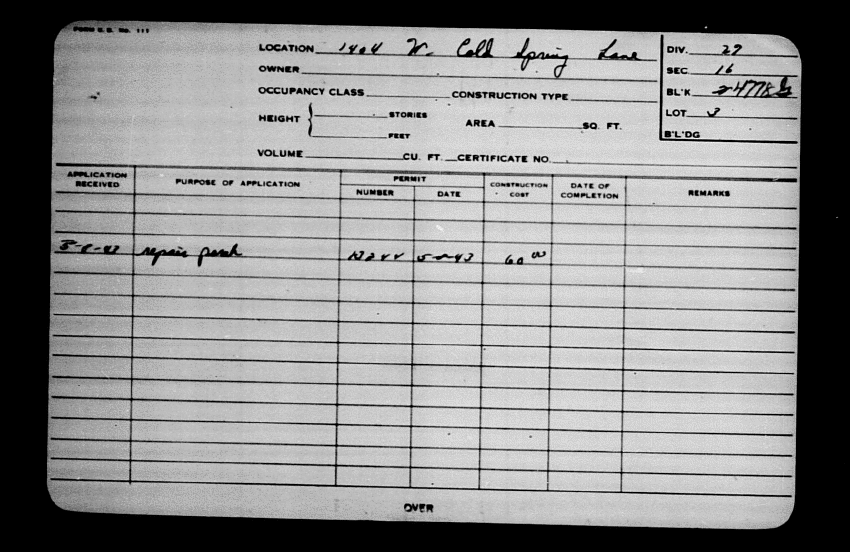 FORM B. D. NO. 111
LOCATION 1404 W. Cold Spring Lane DIV. 27
OWNER SEC 16
OCCUPANCY CLASS CONSTRUCTION TYPE BL'K
HEIGHT STORIES AREA SQ. FT. LOT 3
FEET B'L'DG
VOLUME CU. FT. CERTIFICATE NO.
APPLICATION RECEIVED PURPOSE OF APPLICATION PERMIT NUMBER DATE CONSTRUCTION COST DATE OF COMPLETION REMARKS
repair porch 60 00
OVER